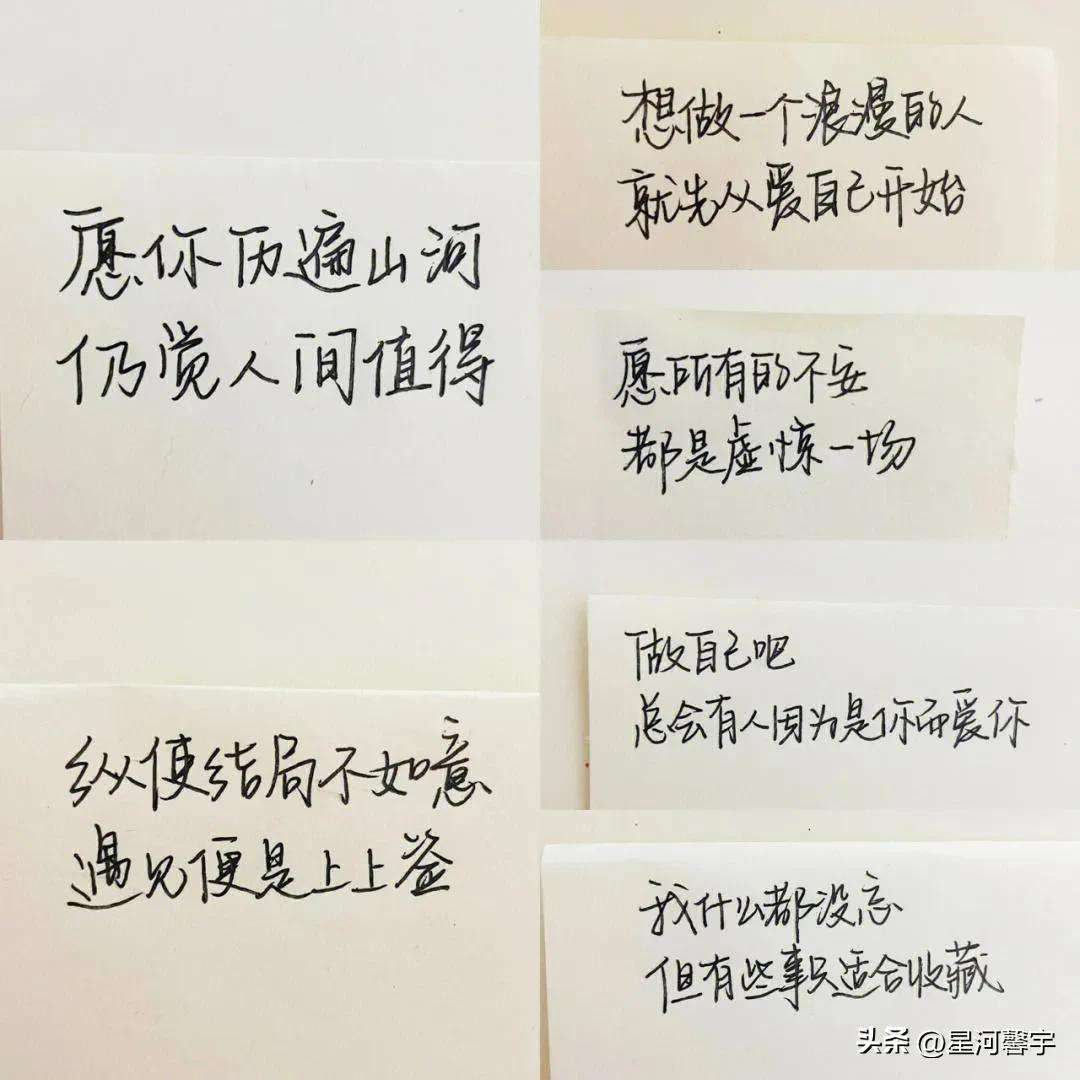 愿你历遍山河
仍觉人间值得
纵使结局不如意
遇见便是上上签
想做一个浪漫的人
就先从爱自己开始
愿所有的不安
都是虚惊一场
做自己吧
总会有人因为是你而爱你
我什么都没忘
但有些事只适合收藏
头条 @星河馨宇